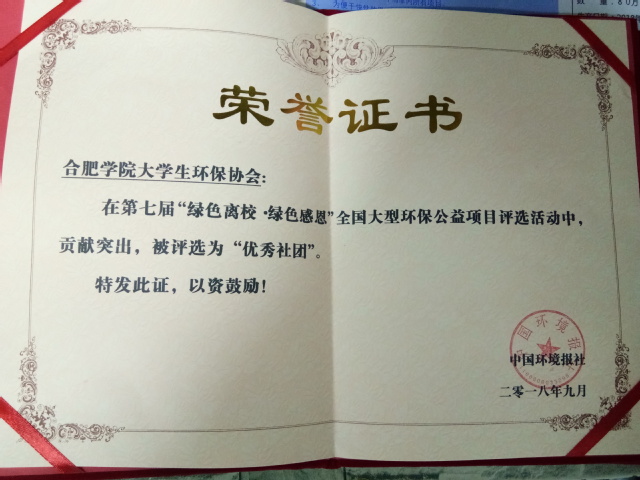 数 量：80万
荣誉证书
合肥学院大学生环保协会：
在第七届“绿色离校·绿色感恩”全国大型环保公益项目评选活动中，
贡献突出，被评选为“优秀社团”。
特发此证，以资鼓励！
中国环境报
中国环境报社
二零一八年九月